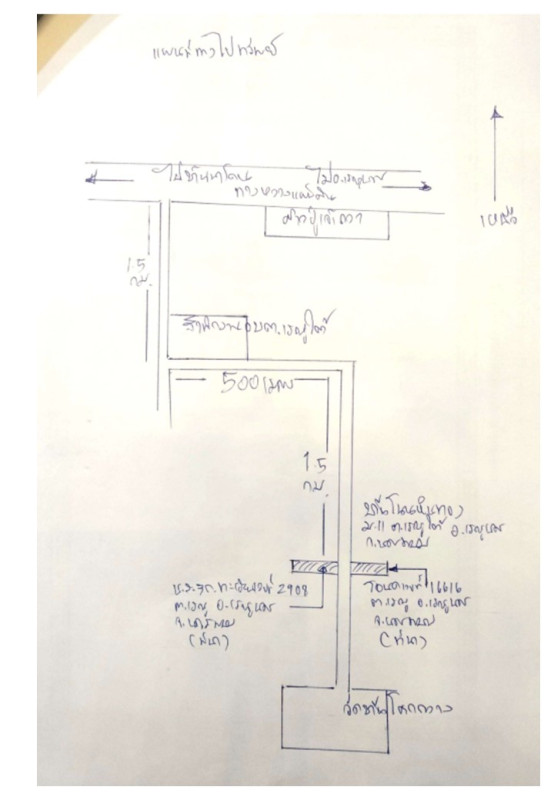 แผนที่ทางไปทรัพย์
ไปบ้านนาโดน
ไปอ.เรณูนคร
ทางหลวงแผ่นดิน
ศาลปู่เจ้า
เหนือ
1.5
กม.
สำนักงาน อบต.เรณูใต้
500 เมตร
1.5
กม.
บ้าน
ม.11 ต.เรณูใต้ อ.เรณูนคร
จ.นครพนม
น.ส.3ก. ทะเบียนเลขที่ 2908
ต.เรณู อ.เรณูนคร
จ.นครพนม
(ที่นา)
โฉนดเลขที่ 16616
ต.เรณู อ.เรณูนคร
จ.นครพนม
(ที่นา)
วัดบ้านโคกกลาง